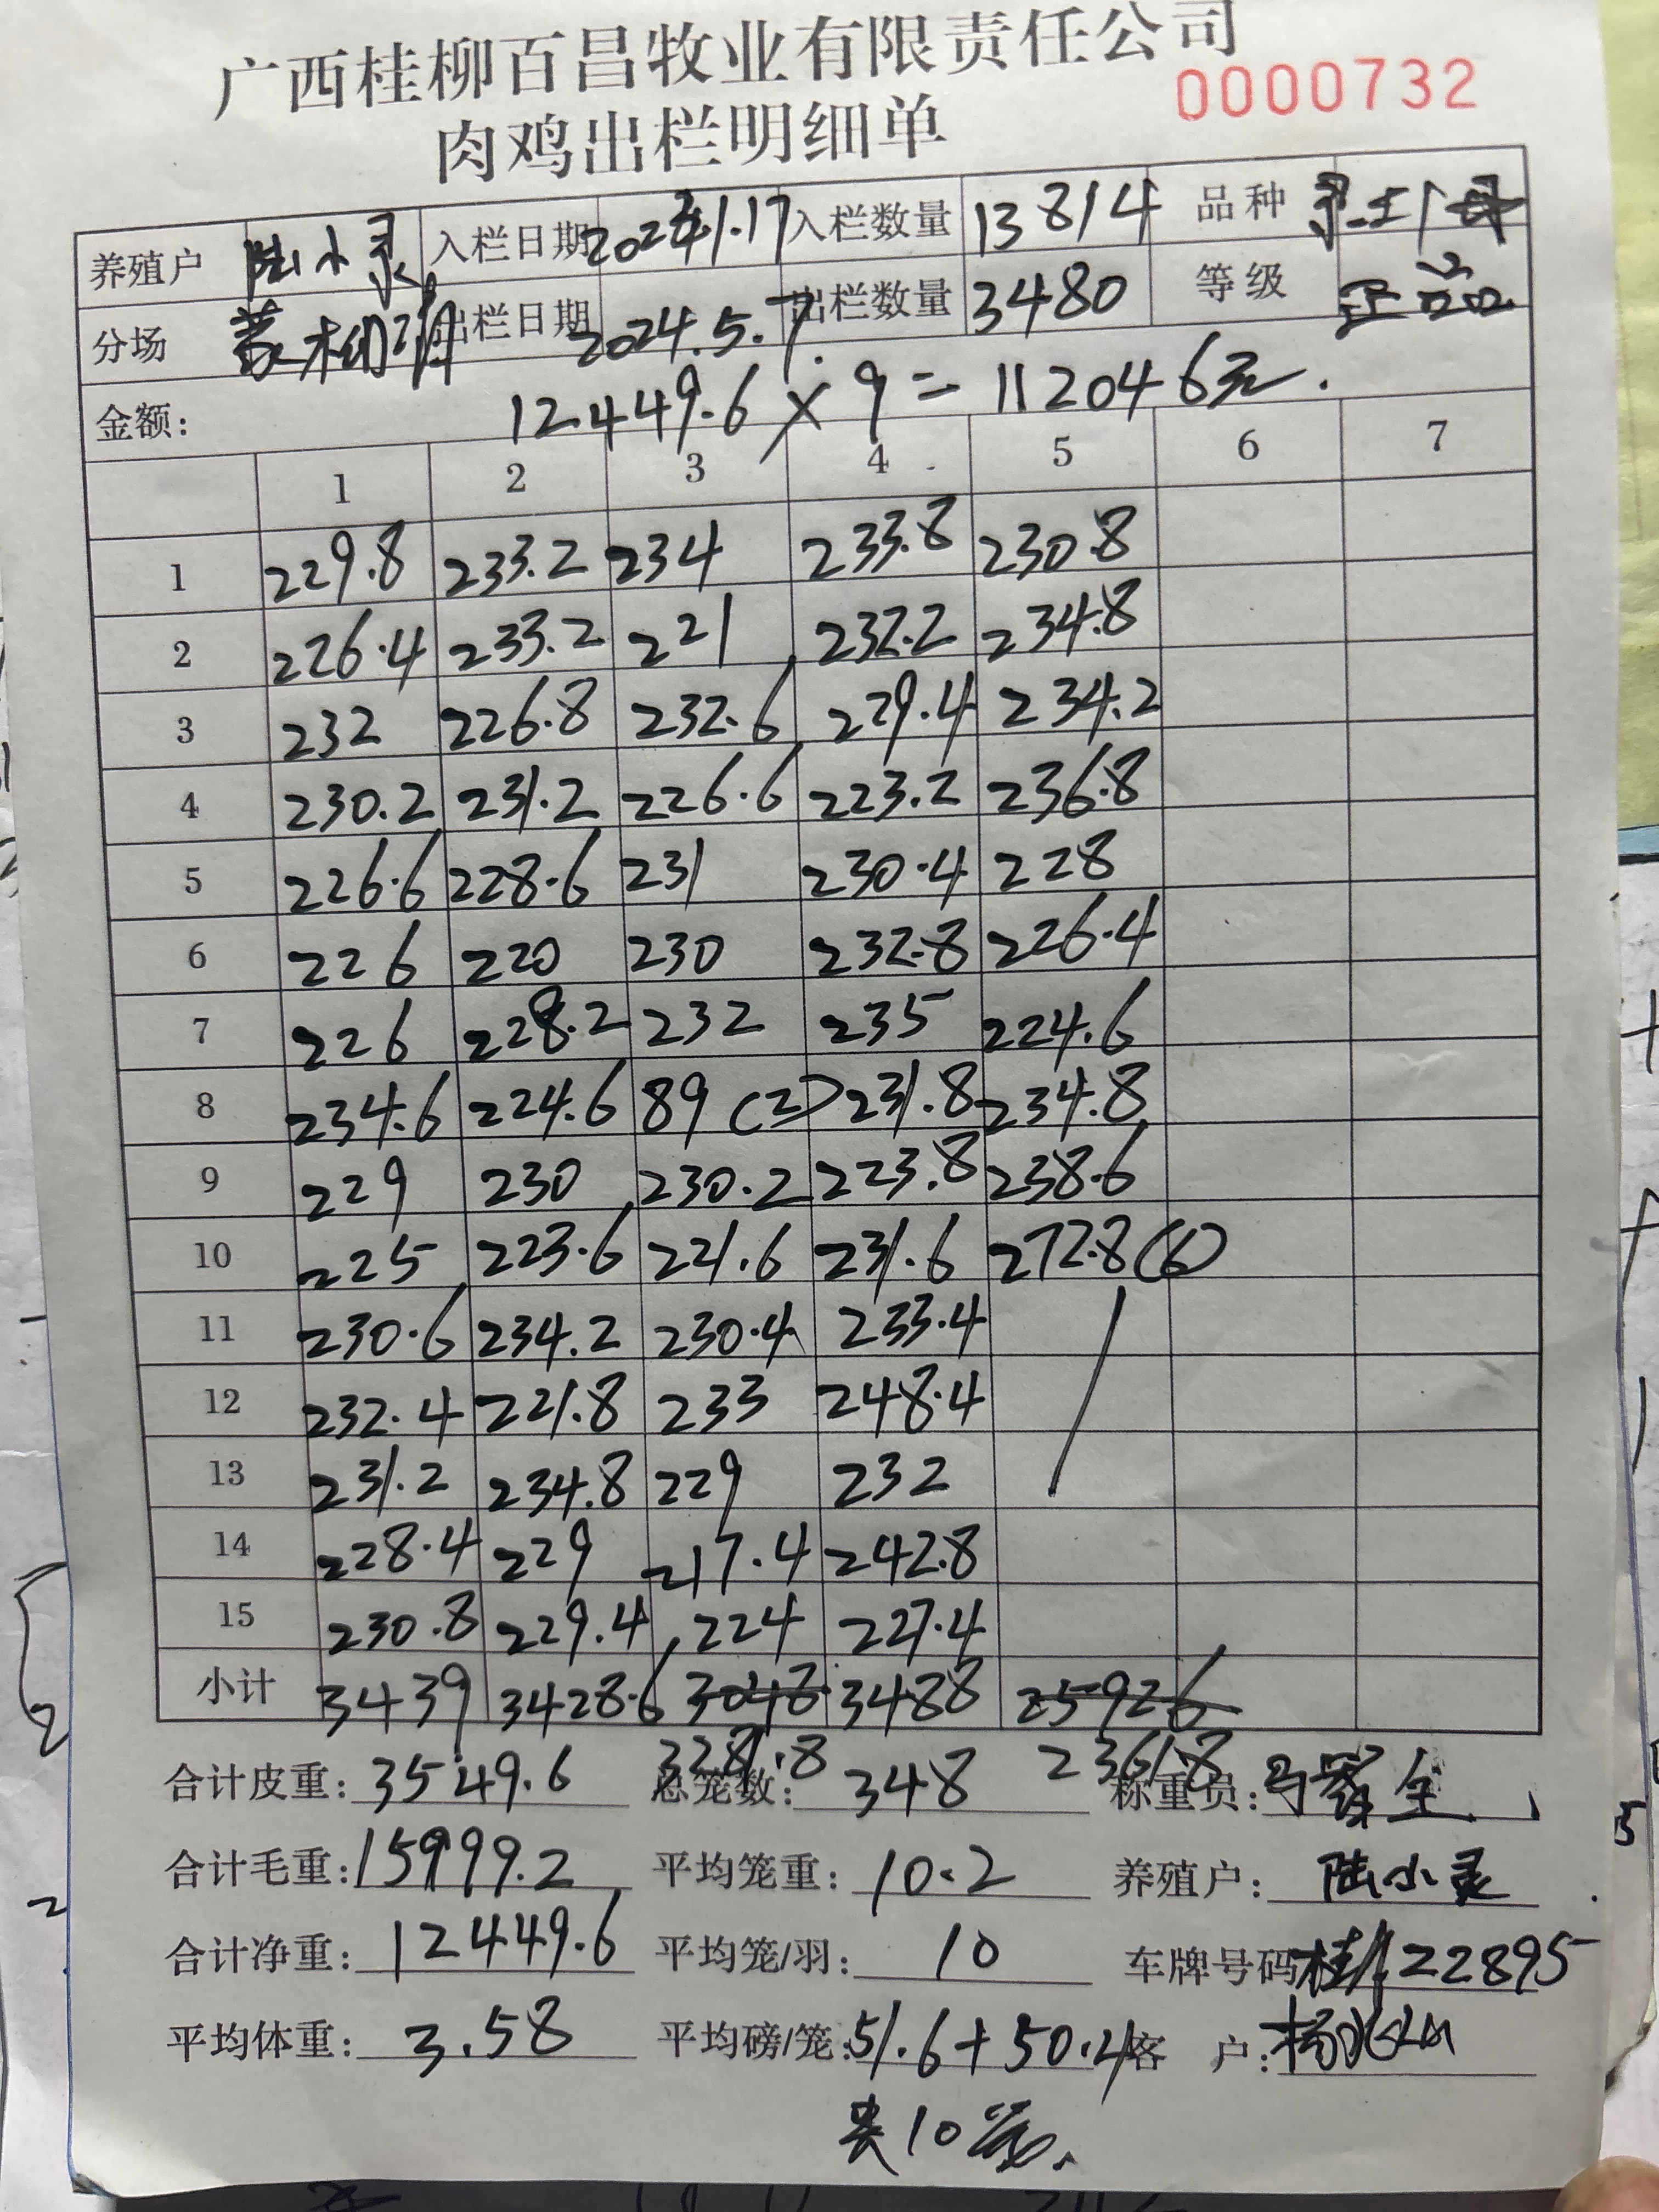 广西桂柳百昌牧业有限责任公司
肉鸡出栏明细单 0000732
养殖户 陆小灵 入栏日期 2024.1.17 入栏数量 13814 品种
分场 出栏日期 2024.5.7. 出栏数量 3480 等级 正品
金额: 12449.6×9=112046元.
1 2 3 4 5 6 7
1 229.8 233.2 234 233.8 230.8
2 226.4 233.2 221 232.2 234.8
3 232 226.8 232.6 229.4 234.2
4 230.2 231.2 226.6 223.2 236.8
5 226.6 228.6 231 230.4 228
6 226 220 230 232.8 226.4
7 226 228.2 232 235 224.6
8 234.6 224.6 89(2) 231.8 234.8
9 229 230 230.2 223.8 238.6
10 225 223.6 221.6 231.6 272.8(6)
11 230.6 234.2 230.4 233.4
12 232.4 221.8 233 248.4
13 231.2 234.8 229 232
14 228.4 229 217.4 242.8
15 230.8 229.4 224 227.4
小计 3439 3428.6 3488
3281.8 2361.8
合计皮重: 3549.6 总笼数: 348 称重员:
合计毛重: 15999.2 平均笼重: 10.2 养殖户: 陆小灵
合计净重: 12449.6 平均笼/羽: 10 车牌号码 22895
平均体重: 3.58 平均磅/笼: 51.6+50.4 客 户:
共10笼.